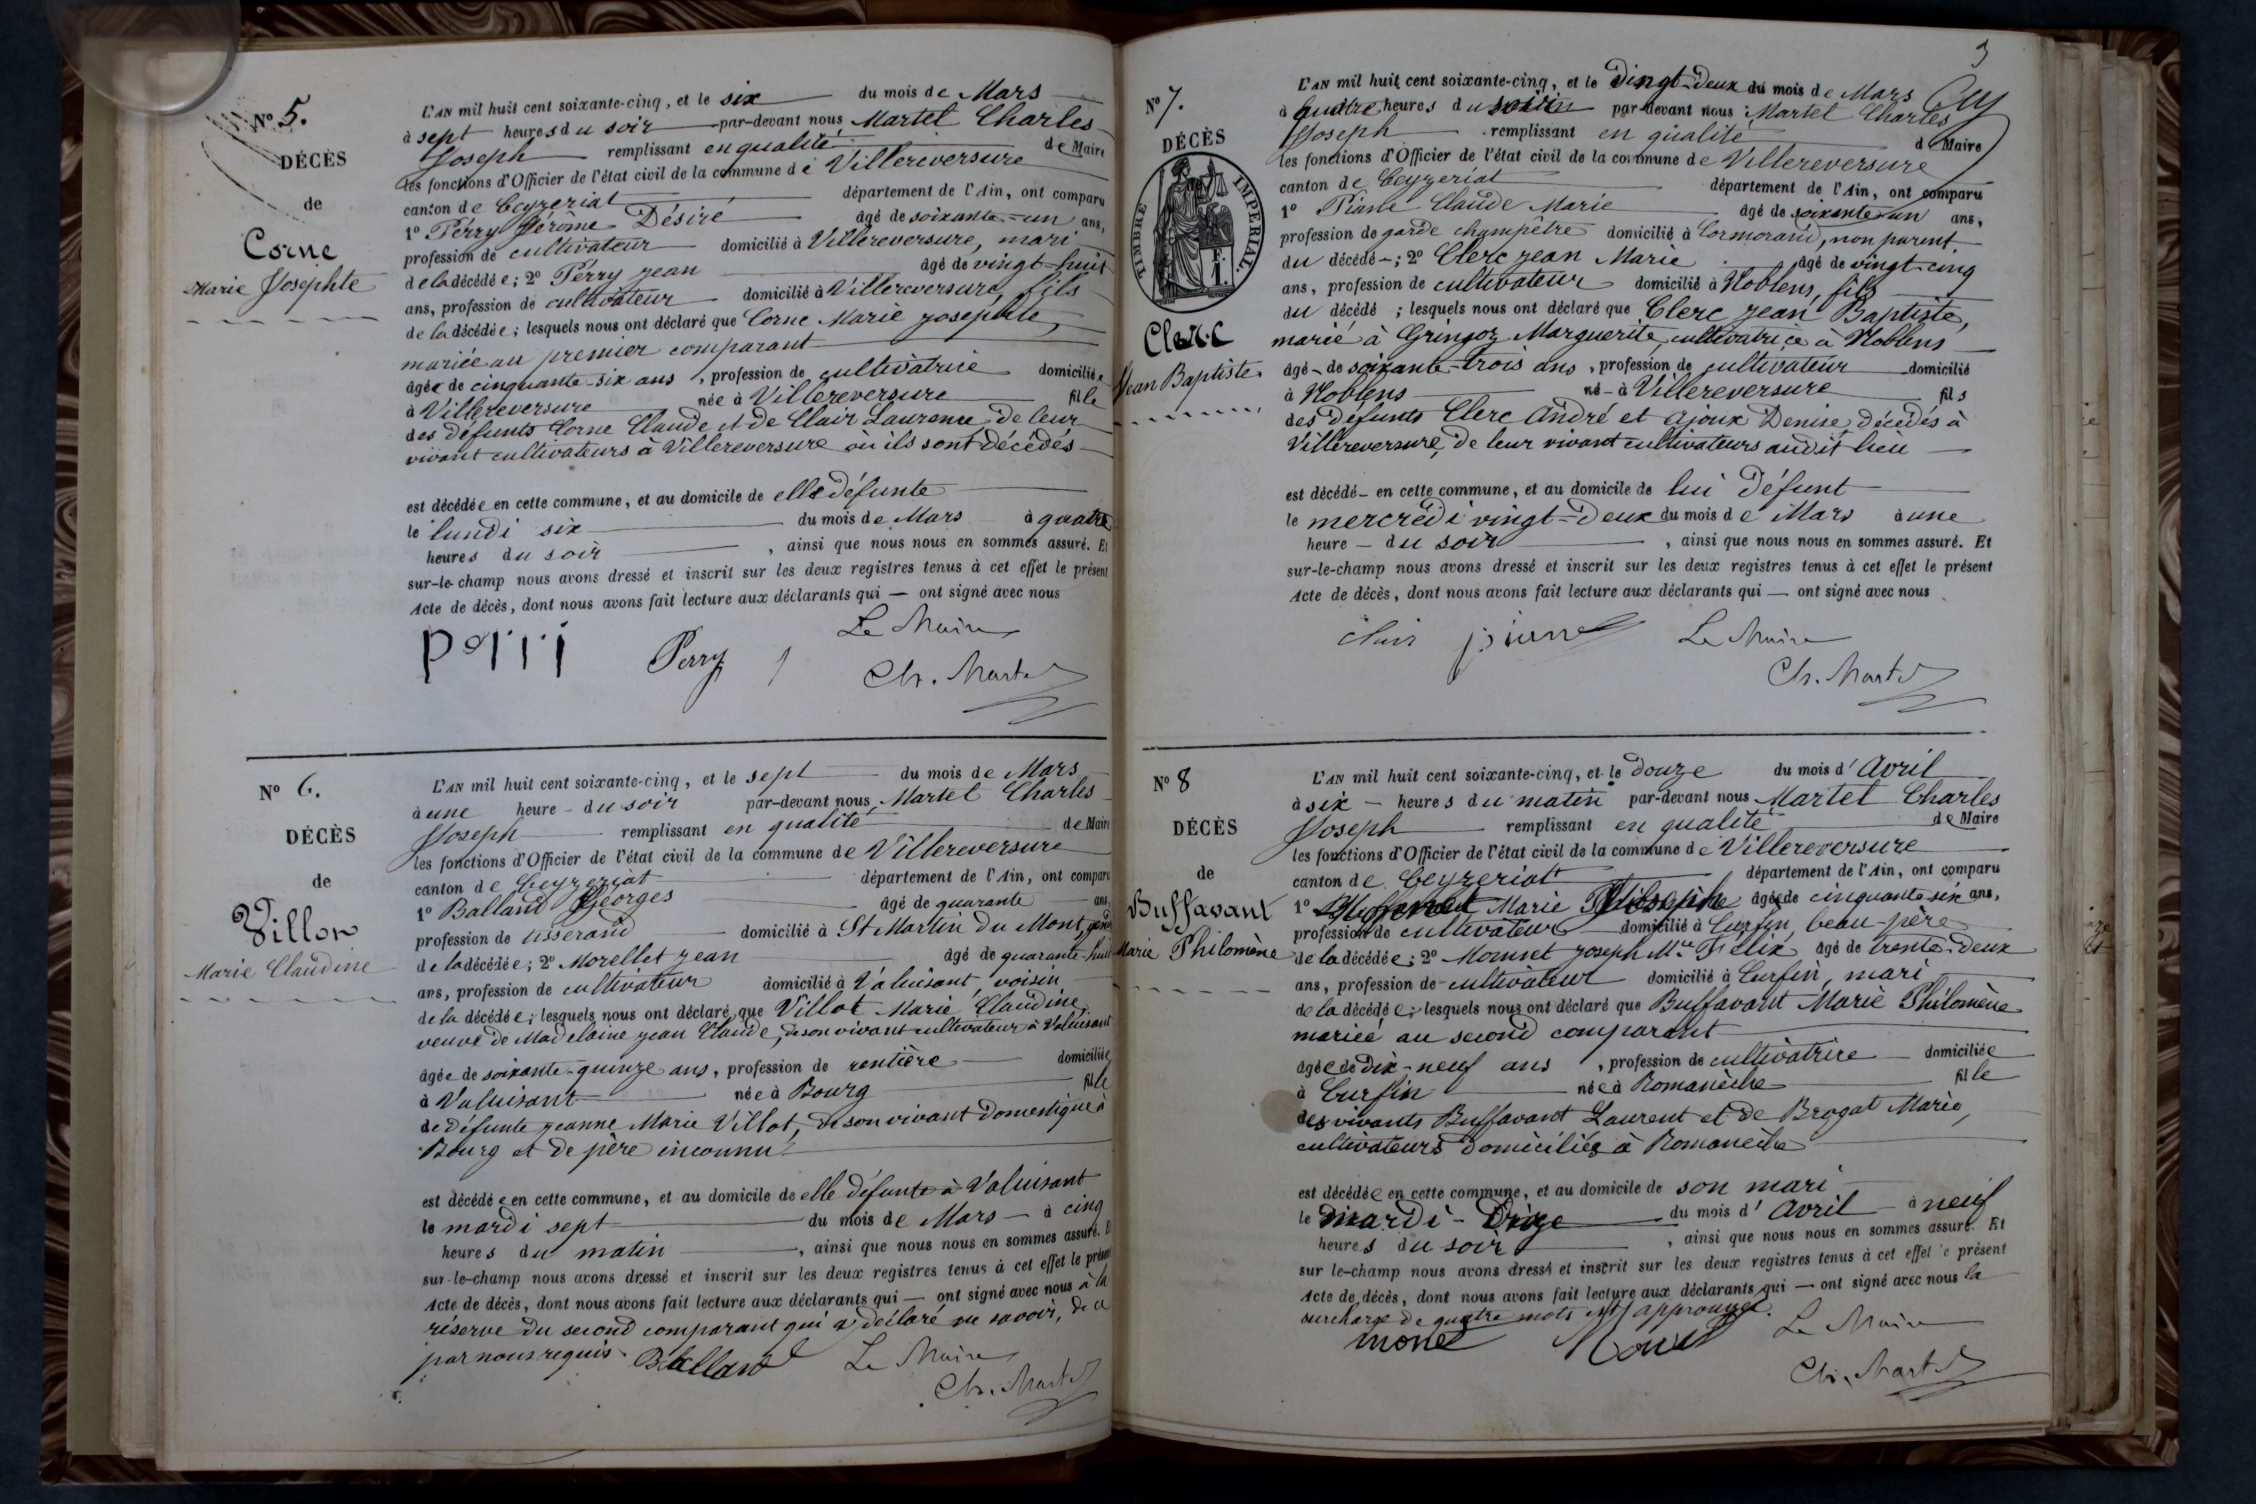 Nº 5.
DÉCÈS
de
Corne
Marie Josephte
L'AN mil huit cent soixante-cinq, et le six du mois de Mars
à sept heures du soir par-devant nous Martel Charles
Joseph remplissant en qualité de Maire
les fonctions d'Officier de l'état civil de la commune de Villereversure
canton de Ceyzeriat département de l'Ain, ont comparu
1º Perry Jérôme Désiré âgé de soixante-un ans,
profession de cultivateur domicilié à Villereversure, mari
de la décédée; 2º Perry Jean âgé de vingt-huit
ans, profession de cultivateur domicilié à Villereversure, fils
de la décédée; lesquels nous ont déclaré que Corne Marie Josephte,
mariée au premier comparant
âgée de cinquante-six ans, profession de cultivatrice domiciliée
à Villereversure née à Villereversure fille
des défunts Corne Claude et de Clair Laurence de leur
vivant cultivateurs à Villereversure où ils sont décédés
est décédée en cette commune, et au domicile de elle défunte
le lundi six du mois de Mars à quatre
heures du soir, ainsi que nous nous en sommes assuré. Et
sur-le-champ nous avons dressé et inscrit sur les deux registres tenus à cet effet le présent
Acte de décès, dont nous avons fait lecture aux déclarants qui — ont signé avec nous
Perry Le Maire
Ch. Martel
Nº 6.
DÉCÈS
de
Villon
Marie Claudine
L'AN mil huit cent soixante-cinq, et le sept du mois de Mars
à une heure - du soir par-devant nous Martel Charles
Joseph remplissant en qualité de Maire
les fonctions d'Officier de l'état civil de la commune de Villereversure
canton de Ceyzeriat département de l'Ain, ont comparu
1º Balland Georges âgé de quarante ans,
profession de tisserand domicilié à St Martin du Mont, gendre
de la décédée; 2º Morellet Jean âgé de quarante-huit
ans, profession de cultivateur domicilié à Valuisant, voisin
de la décédée; lesquels nous ont déclaré que Villot Marie Claudine
veuve de Madelaine Jean Claude, de son vivant cultivateur à Valuisant
âgée de soixante-quinze ans, profession de rentière domiciliée
à Valuisant née à Bourg fille
de défunte Jeanne Marie Villot, de son vivant domestique à
Bourg et de père inconnu
est décédée en cette commune, et au domicile de elle défunte à Valuisant
le mardi sept du mois de Mars — à cinq
heures du matin, ainsi que nous nous en sommes assuré. E
sur-le-champ nous avons dressé et inscrit sur les deux registres tenus à cet effet le présent
Acte de décès, dont nous avons fait lecture aux déclarants qui — ont signé avec nous à la
réserve du second comparant qui a déclaré ne savoir, de ce
par nous requis. Balland Le Maire
Ch. Martel
3
Nº 7.
DÉCÈS
TIMBRE IMPERIAL.
Clerc
Jean Baptiste
L'AN mil huit cent soixante-cinq, et le vingt-deux du mois de Mars
à quatre heures du soir par-devant nous Martel Charles
Joseph remplissant en qualité de Maire
les fonctions d'Officier de l'état civil de la commune de Villereversure
canton de Ceyzeriat département de l'Ain, ont comparu
1º Piarre Claude Marie âgé de soixante-un ans,
profession de garde champêtre domicilié à Cormorand, non parent
du décédé -; 2º Clerc Jean Marie âgé de vingt-cinq
ans, profession de cultivateur domicilié à Noblens, fils
du décédé; lesquels nous ont déclaré que Clerc Jean Baptiste,
marié à Gringoz Marguerite, cultivatrice à Noblens
âgé - de soixante-trois ans, profession de cultivateur domicilié
à Noblens né - à Villereversure fils
des défunts Clerc André et Ajoux Denise, décédés à
Villereversure, de leur vivant cultivateurs audit lieu
est décédé - en cette commune, et au domicile de lui défunt
le mercredi vingt-deux du mois de Mars à une
heure - du soir, ainsi que nous nous en sommes assuré. Et
sur-le-champ nous avons dressé et inscrit sur les deux registres tenus à cet effet le présent
Acte de décès, dont nous avons fait lecture aux déclarants qui — ont signé avec nous
Le Maire
Ch. Martel
Nº 8
DÉCÈS
de
Buffavant
Marie Philomène
L'AN mil huit cent soixante-cinq, et le douze du mois d'Avril
à six - heures du matin par-devant nous Martel Charles
Joseph remplissant en qualité de Maire
les fonctions d'Officier de l'état civil de la commune de Villereversure
canton de Ceyzeriat département de l'Ain, ont comparu
1º Marie Joseph âgé de cinquante-six ans,
profession de cultivateur domicilié à Curfin, beau-père
de la décédée; 2º Monnet Joseph Mie Félix âgé de trente-deux
ans, profession de cultivateur domicilié à Curfin, mari
de la décédée; lesquels nous ont déclaré que Buffavant Marie Philomène
mariée au second comparant
âgée de dix-neuf ans, profession de cultivatrice domiciliée
à Curfin née à Romanèche fille
des vivants Buffavant Laurent et de Brogat Marie,
cultivateurs domiciliés à Romanèche
est décédée en cette commune, et au domicile de son mari
le mardi - onze du mois d'Avril à neuf
heures du soir, ainsi que nous nous en sommes assuré. Et
sur le-champ nous avons dressé et inscrit sur les deux registres tenus à cet effet le présent
Acte de décès, dont nous avons fait lecture aux déclarants qui — ont signé avec nous la
surcharge de quatre mots est approuvée.
monet Le Maire
Ch. Martel